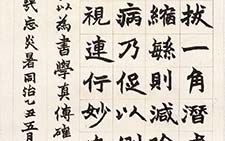 拔一角潛
縮緐則減除
病乃促以
視連行妙
以為書學真傳確
忘炎暑同治乙丑五月